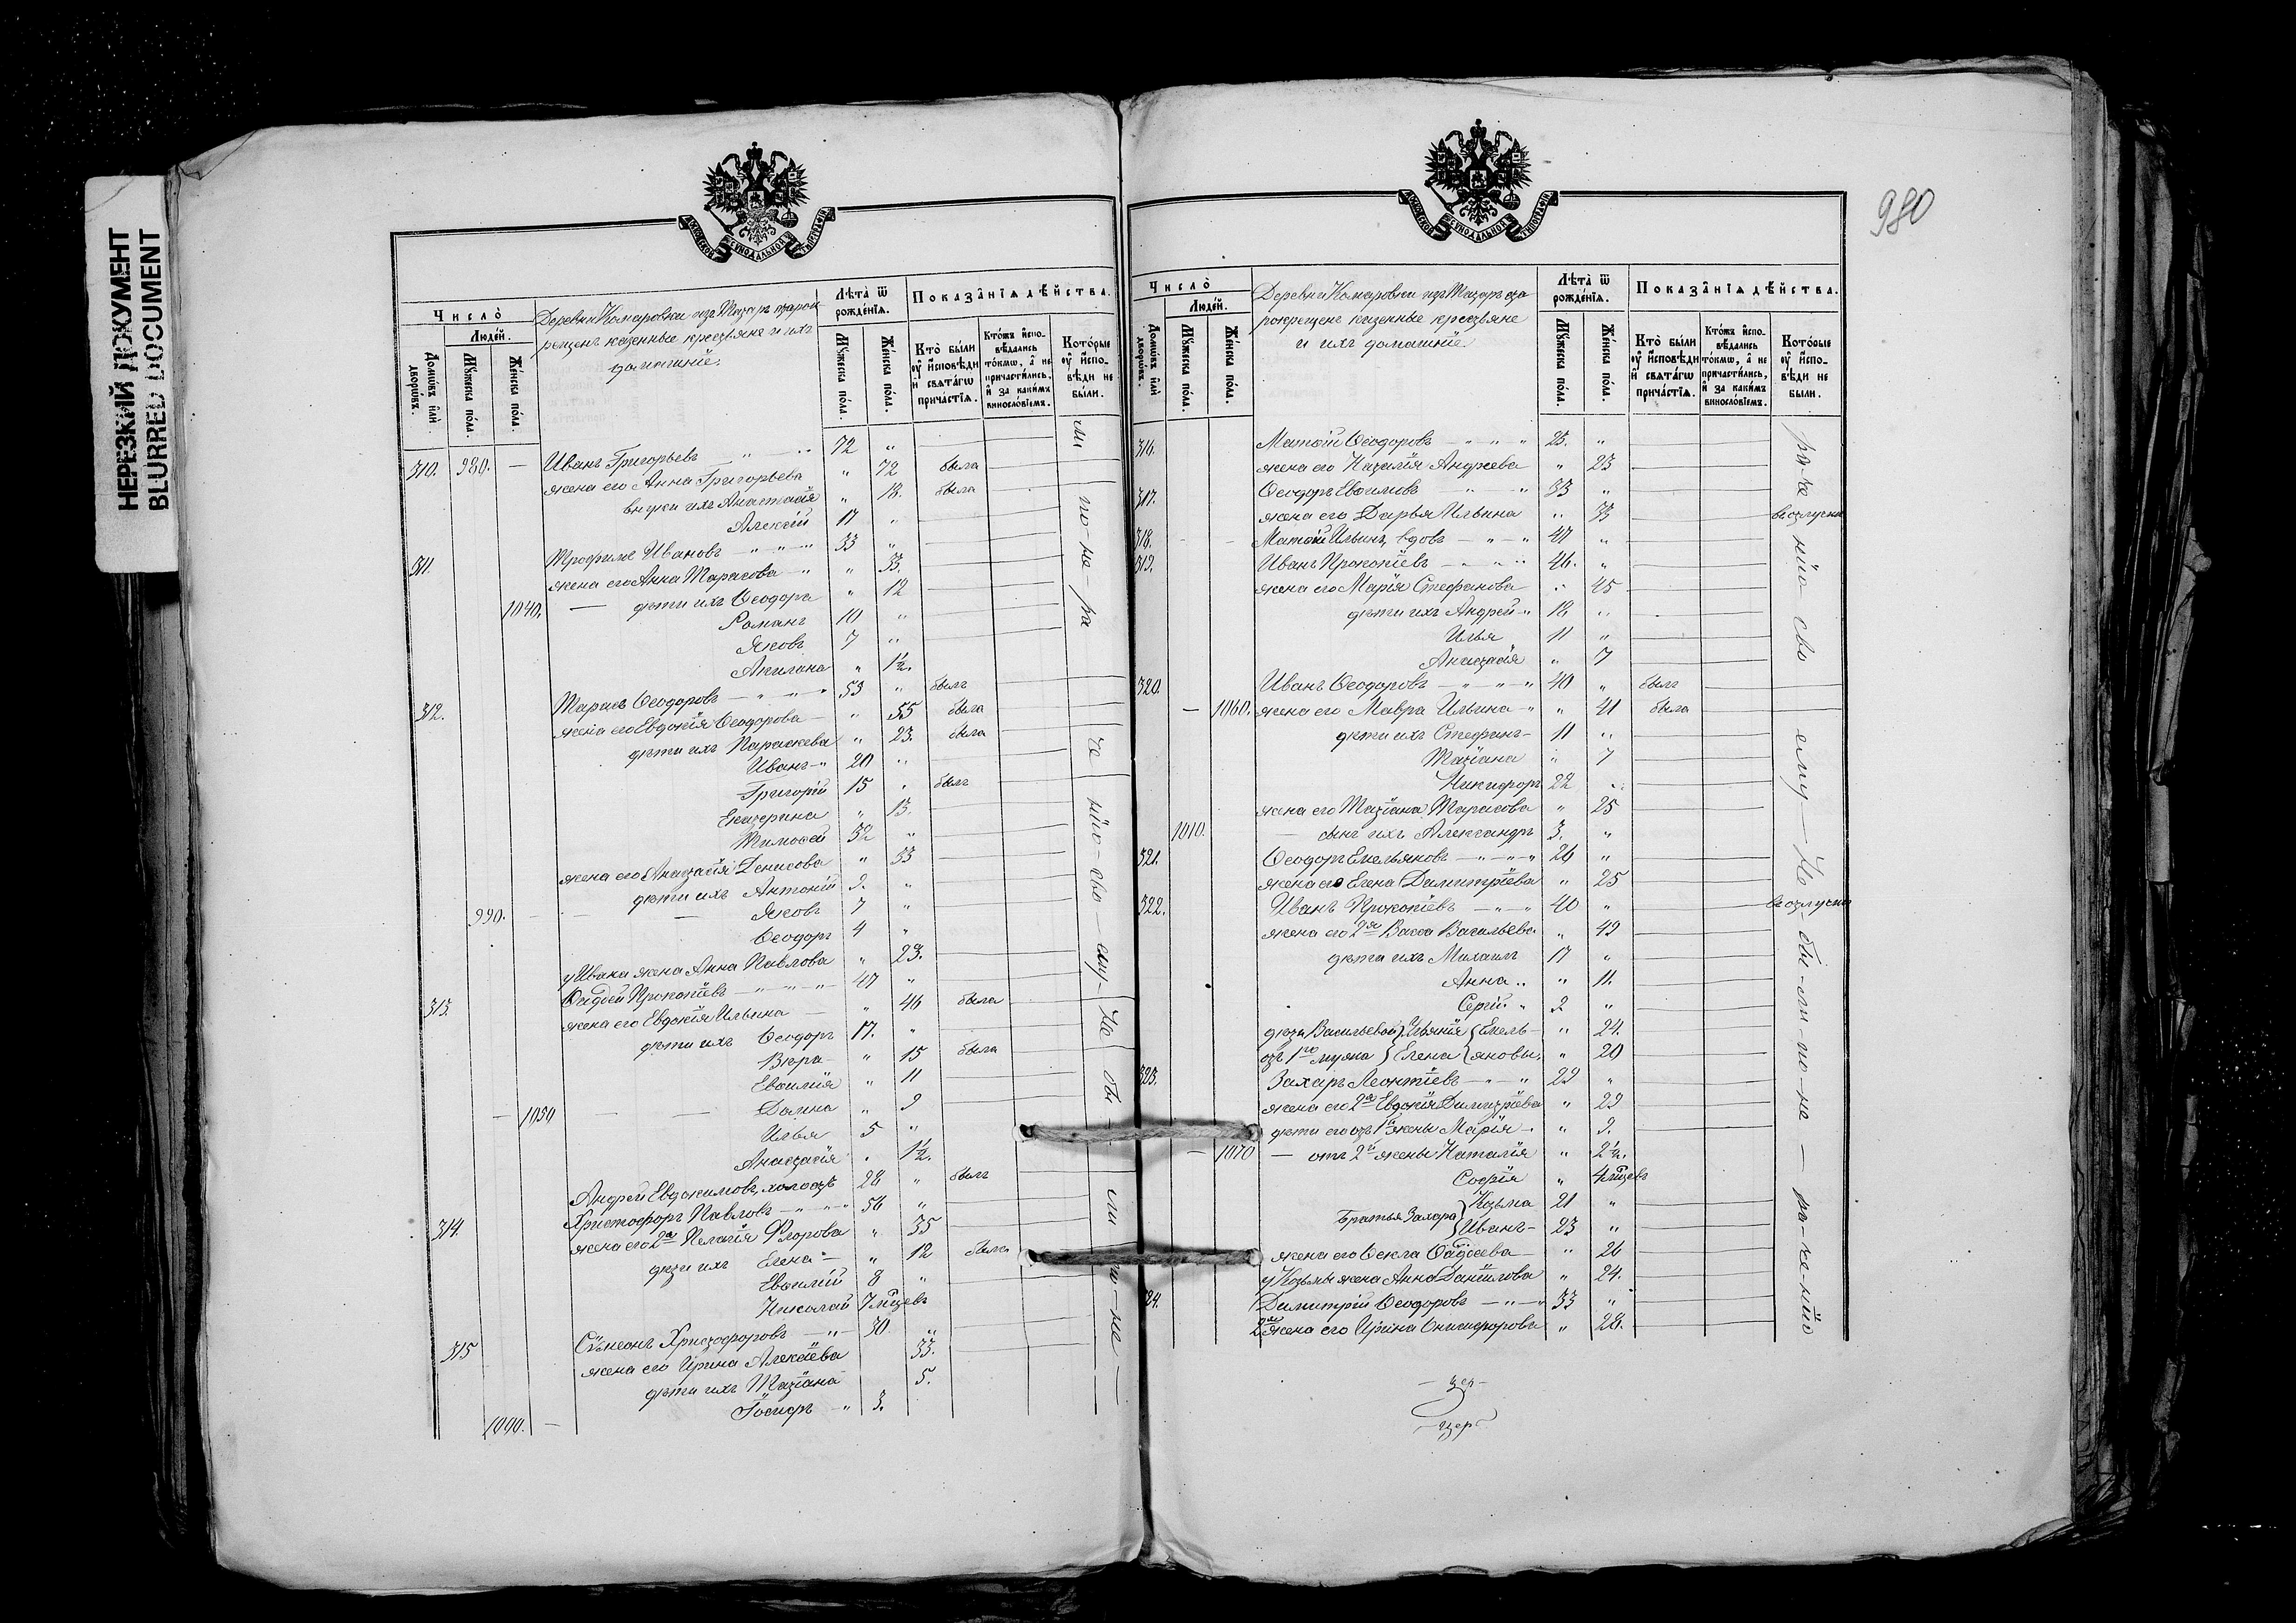 НЕРЕЗКИЙ ДОКУМЕНТ
BLURRED DOCUMENT
980
МОСКОВСКОЙ СѴНОДАЛЬНОЙ ТѴПОГРАФІИ
Число̀
Люде́й.
Домѡвъ и҆лѝ дворѡвъ.
Мꙋ́жеска по́ла.
Же́нска по́ла.
Деревни Комаровки изъ Татаръ старок-
рещенъ казенные крестьяне и ихъ
домашніе.
Лѣта̀ ѿ рожде́нїѧ.
Мꙋ́жеска по́ла.
Же́нска по́ла.
Показа̑нїѧ дѣ́йства.
Кто̀ бы́ли ᲂу҆ и҆́сповѣди и҆ свѧта́гѡ прича́стїѧ.
Кто́жъ и҆спо-вѣ́дались то́кмѡ, а҆ не причасти́лись, и҆ за каки́мъ винослᲂ́вїемъ.
Кото́рые ᲂу҆ и҆спо-вѣди не бы́ли.
310. 980. — Иванъ Григорьевъ 72 „
жена его Анна Григорьева „ 72 была
внуки ихъ Анастасія „ 18. была
Алексій 17 „
311. Трофимъ Ивановъ 33 „
жена его Анна Тарасова „ 33.
1040. — дѣти ихъ Ѳеодора „ 12
Романъ 10 „
Яковъ 7 „
Акилина „ 1½.
312. Тарасъ Ѳеодоровъ 53 „ былъ
жена его Евдокія Ѳеодорова „ 55 была
дѣти ихъ Параскева „ 23. была
Иванъ 20 „
Григорій 15 „ былъ
Екатерина „ 13.
Тимоѳей 32 „
жена его Анастасія Денисова „ 33
дѣти ихъ Антоній 9. „
990. — Яковъ 7 „
Ѳеодоръ 4 „
у Ивана жена Анна Павлова „ 23.
313. Ѳаддей Прокопіевъ 47 „
жена его Евдокія Ильина „ 46 была
дѣти ихъ Ѳеодоръ 17. „
Вѣра „ 15 была
Евѳимія „ 11
— 1050 — Домна „ 9
Илья 5 „
Анастасія „ 1½.
Андрей Евдокимовъ, холостъ 28 „ былъ
314. Христофоръ Павловъ 56 „
жена его 2я Пелагія Флорова „ 35
дѣти ихъ Елена „ 12 была
Евѳимій 8 „
Николай 7 мцевъ
315 Сѵмеонъ Христофоровъ 30 „
жена его Ирина Алексіева 33.
дѣти ихъ Татіана 5.
1000. — Іосифъ „ 3.
ли по не-ра че нію-сво ему- Не бы- ли по-не-
Число̀
Люде́й.
Домѡвъ и҆лѝ дворѡвъ.
Мꙋ́жеска по́ла.
Же́нска по́ла.
Деревни Комаровки изъ Татаръ ста
рокрещенъ казенные крестьяне
и ихъ домашніе
Лѣта̀ ѿ рожде́нїѧ.
Мꙋ́жеска по́ла.
Же́нска по́ла.
Показа̑нїѧ дѣ́йства.
Кто̀ бы́ли ᲂу҆ и҆́сповѣди и҆ свѧта́гѡ прича́стїѧ.
Кто́жъ и҆спо-вѣ́дались то́кмѡ, а҆ не причасти́лись, и҆ за каки́мъ винослᲂ́вїемъ.
Кото́рые ᲂу҆ и҆спо-вѣди не бы́ли.
316. Матѳій Ѳеодоровъ 25. „
жена его Наталія Андреева „ 23
317. Ѳеодоръ Евѳимовъ 33 „
жена его Дарья Ильина „ 33
318. Матѳій Ильинъ, вдовъ 47 „
319. Иванъ Прокопіевъ 46. „
жена его Марія Стефанова „ 45
дѣти ихъ Андрей 18 „
Илья 11 „
Анастасія „ 7
320. Иванъ Ѳеодоровъ 40 „ былъ
— 1060. жена его Мавра Ильина „ 41 была
дѣти ихъ Стефанъ 11 „
Татіана „ 7
Никифоръ 22 „
жена его Татіана Тарасова „ 25
1010. — сынъ ихъ Александръ 3. „
321. Ѳеодоръ Емельяновъ 26 „
жена его Елена Димитріева „ 25
322. Иванъ Прокопіевъ 40 „
жена его 2я Васса Васильева „ 49
дѣти ихъ Михаилъ 17 „
Анна „ 11.
Сергій 2 „
дѣти Васильевой Емель- „ 24.
отъ 1го мужа Елена яновы, „ 20
323. Захаръ Леонтіевъ 29 „
жена его 2я Евдокія Димитріева „ 29
дѣти его отъ 1й жены Марія „ 9.
— 1070 — отъ 2й жены Наталія „ 2½.
Софія „ 4 мцевъ
Братья Захара Козьма 21 „
Иванъ 23 „
жена его Ѳекла Ѳаддеева „ 26
у Козьмы жена Анна Даніилова „ 24.
324. Димитрій Ѳеодоровъ 33 „
2я жена его Ирина Онисифорова „ 28.
ра-че нію сво ему — Не-бы-ли-по-не — ра-че-нію